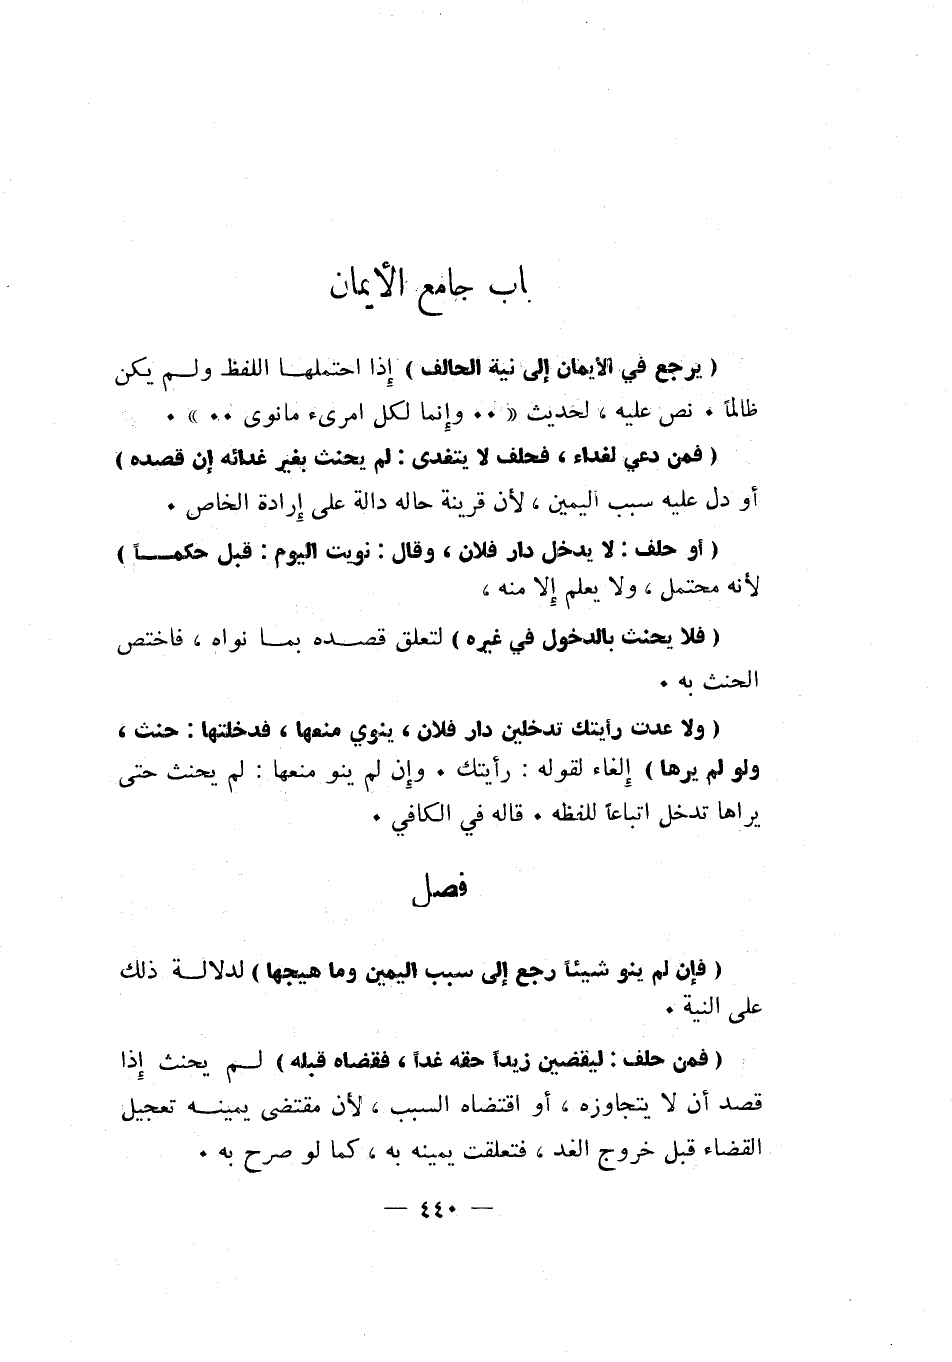 باب جامع الأيمان
( يرجع في الأيمان إلى نية الحالف ) إذا احتملهـا اللفظ ولـم يكن
ظالماً . نص عليه ، لحديث « .. وإنما لكل امرىء مانوى .. » .
( فمن دعي لغداء ، فحلف لا يتغدى : لم يحنث بغير غدائه إن قصده )
أو دل عليه سبب اليمين ، لأن قرينة حاله دالة على إرادة الخاص .
( أو حلف : لا يدخل دار فلان ، وقال : نويت اليوم : قبل حكمـــاً )
لأنه محتمل ، ولا يعلم إلا منه ،
( فلا يحنث بالدخول في غيره ) لتعلق قصـــده بمـا نواه ، فاختص
الحنث به .
( ولا عدت رأيتك تدخلين دار فلان ، ينوي منعها ، فدخلتها : حنث ،
ولو لم يرها ) إلغاء لقوله : رأيتك . وإن لم ينو منعها : لم يحنث حتى
يراها تدخل اتباعاً للفظه . قاله في الكافي .
فصل
( فإن لم ينو شيئاً رجع إلى سبب اليمين وما هيجها ) لدلالـة ذلك
على النية .
( فمن حلف : ليقضين زيداً حقه غداً ، فقضاه قبله ) لـم يحنث إذا
قصد أن لا يتجاوزه ، أو اقتضاه السبب ، لأن مقتضى يمينـه تعجيل
القضاء قبل خروج الغد ، فتعلقت يمينه به ، كما لو صرح به .
— ٤٤٠ —